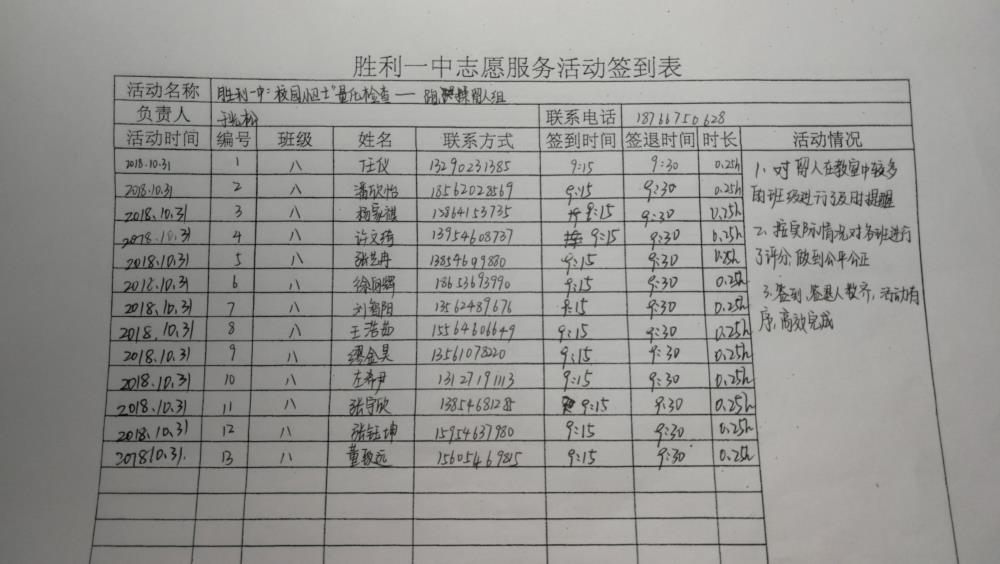 胜利一中志愿服务活动签到表
活动名称 胜利一中:校园小卫士"量化检查— 留人组
负责人 联系电话 18766750628
活动时间 编号 班级 姓名 联系方式 签到时间 签退时间 时长 活动情况
2018.10.31 1 八 任仪 13290231385 9:15 9:30 0.25h
2018.10.31 2 八 潘欣怡 18562028569 9:15 9:30 0.25h
2018.10.31 3 八 杨家祺 13864153735 9:15 9:30 0.25h
2018.10.31 4 八 许文琦 13954608737 9:15 9:30 0.25h
2018.10.31 5 八 张艺冉 13854699880 9:15 9:30 0.25h
2018.10.31 6 八 18653693990 9:15 9:30 0.25h
2018.10.31 7 八 刘智阳 13562489676 9:15 9:30 0.25h
2018.10.31 8 八 王浩茹 15564606649 9:15 9:30 0.25h
2018.10.31 9 八 缪金昊 13561078220 9:15 9:30 0.25h
2018.10.31 10 八 左希尹 13127191113 9:15 9:30 0.25h
2018.10.31 11 八 张宇欣 13854681285 9:15 9:30 0.25h
2018.10.31 12 八 张钰坤 15954637980 9:15 9:30 0.25h
2018.10.31. 13 八 董致远 15605469815 9:15 9:30 0.25h
1、对留人在教室中较多
的班级进行了及时提醒
2、按实际情况对各班进行
了评分,做到公平公正
3.签到、签退人数齐,活动有
序,高效完成